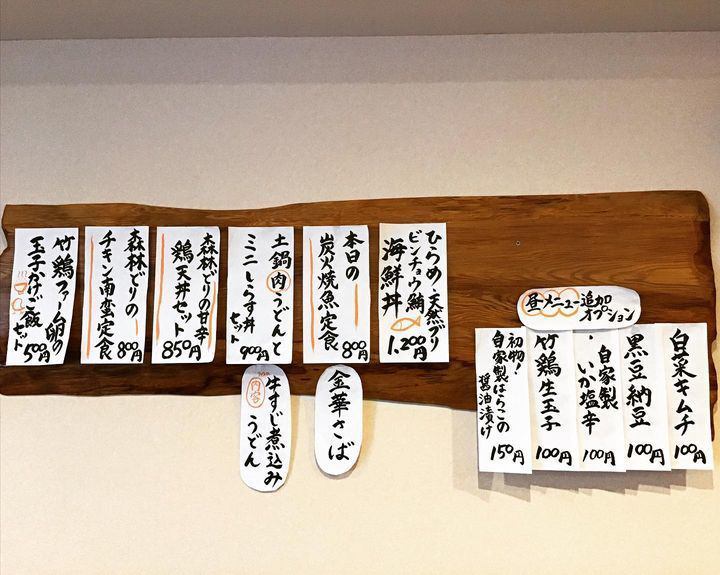 ひらめ、天然ぶり
ビンチョウ鮪
海鮮丼
1,200円
本日の
炭火焼魚定食
800円
金華さば
土鍋肉うどんと
ミニしらす丼
セット
900円
内容
牛すじ煮込み
うどん
森林どりの甘辛
鶏天丼セット
850円
森林どりの
チキン南蛮定食
800円
竹鶏ファーム卵の
玉子かけご飯
セット
500円
昼メニュー追加
オプション
白菜キムチ
100円
黒豆納豆
100円
自家製
いか塩辛
100円
竹鶏生玉子
100円
初物!
自家製はらこの
醤油漬け
150円